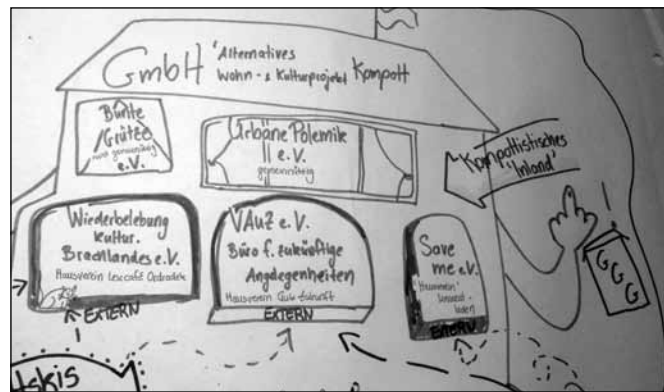 GmbH "Alternatives
Wohn- & Kulturprojekt Kompott
Bunte
Grütze
nicht gemeinnützig
e.V.
Urbane Polemik
e.V.
gemeinnützig
Kompottistisches
"Inland"
Wiederbelebung
kultur.
Brachlandes e.V.
Hausverein Lesecafé Odradek
EXTERN
VAuZ e.V.
Büro f. zukünftige
Angelegenheiten
Hausverein Club Zukunft
EXTERN
Save
me e.V.
laden
EXTERN
GGG
tskis